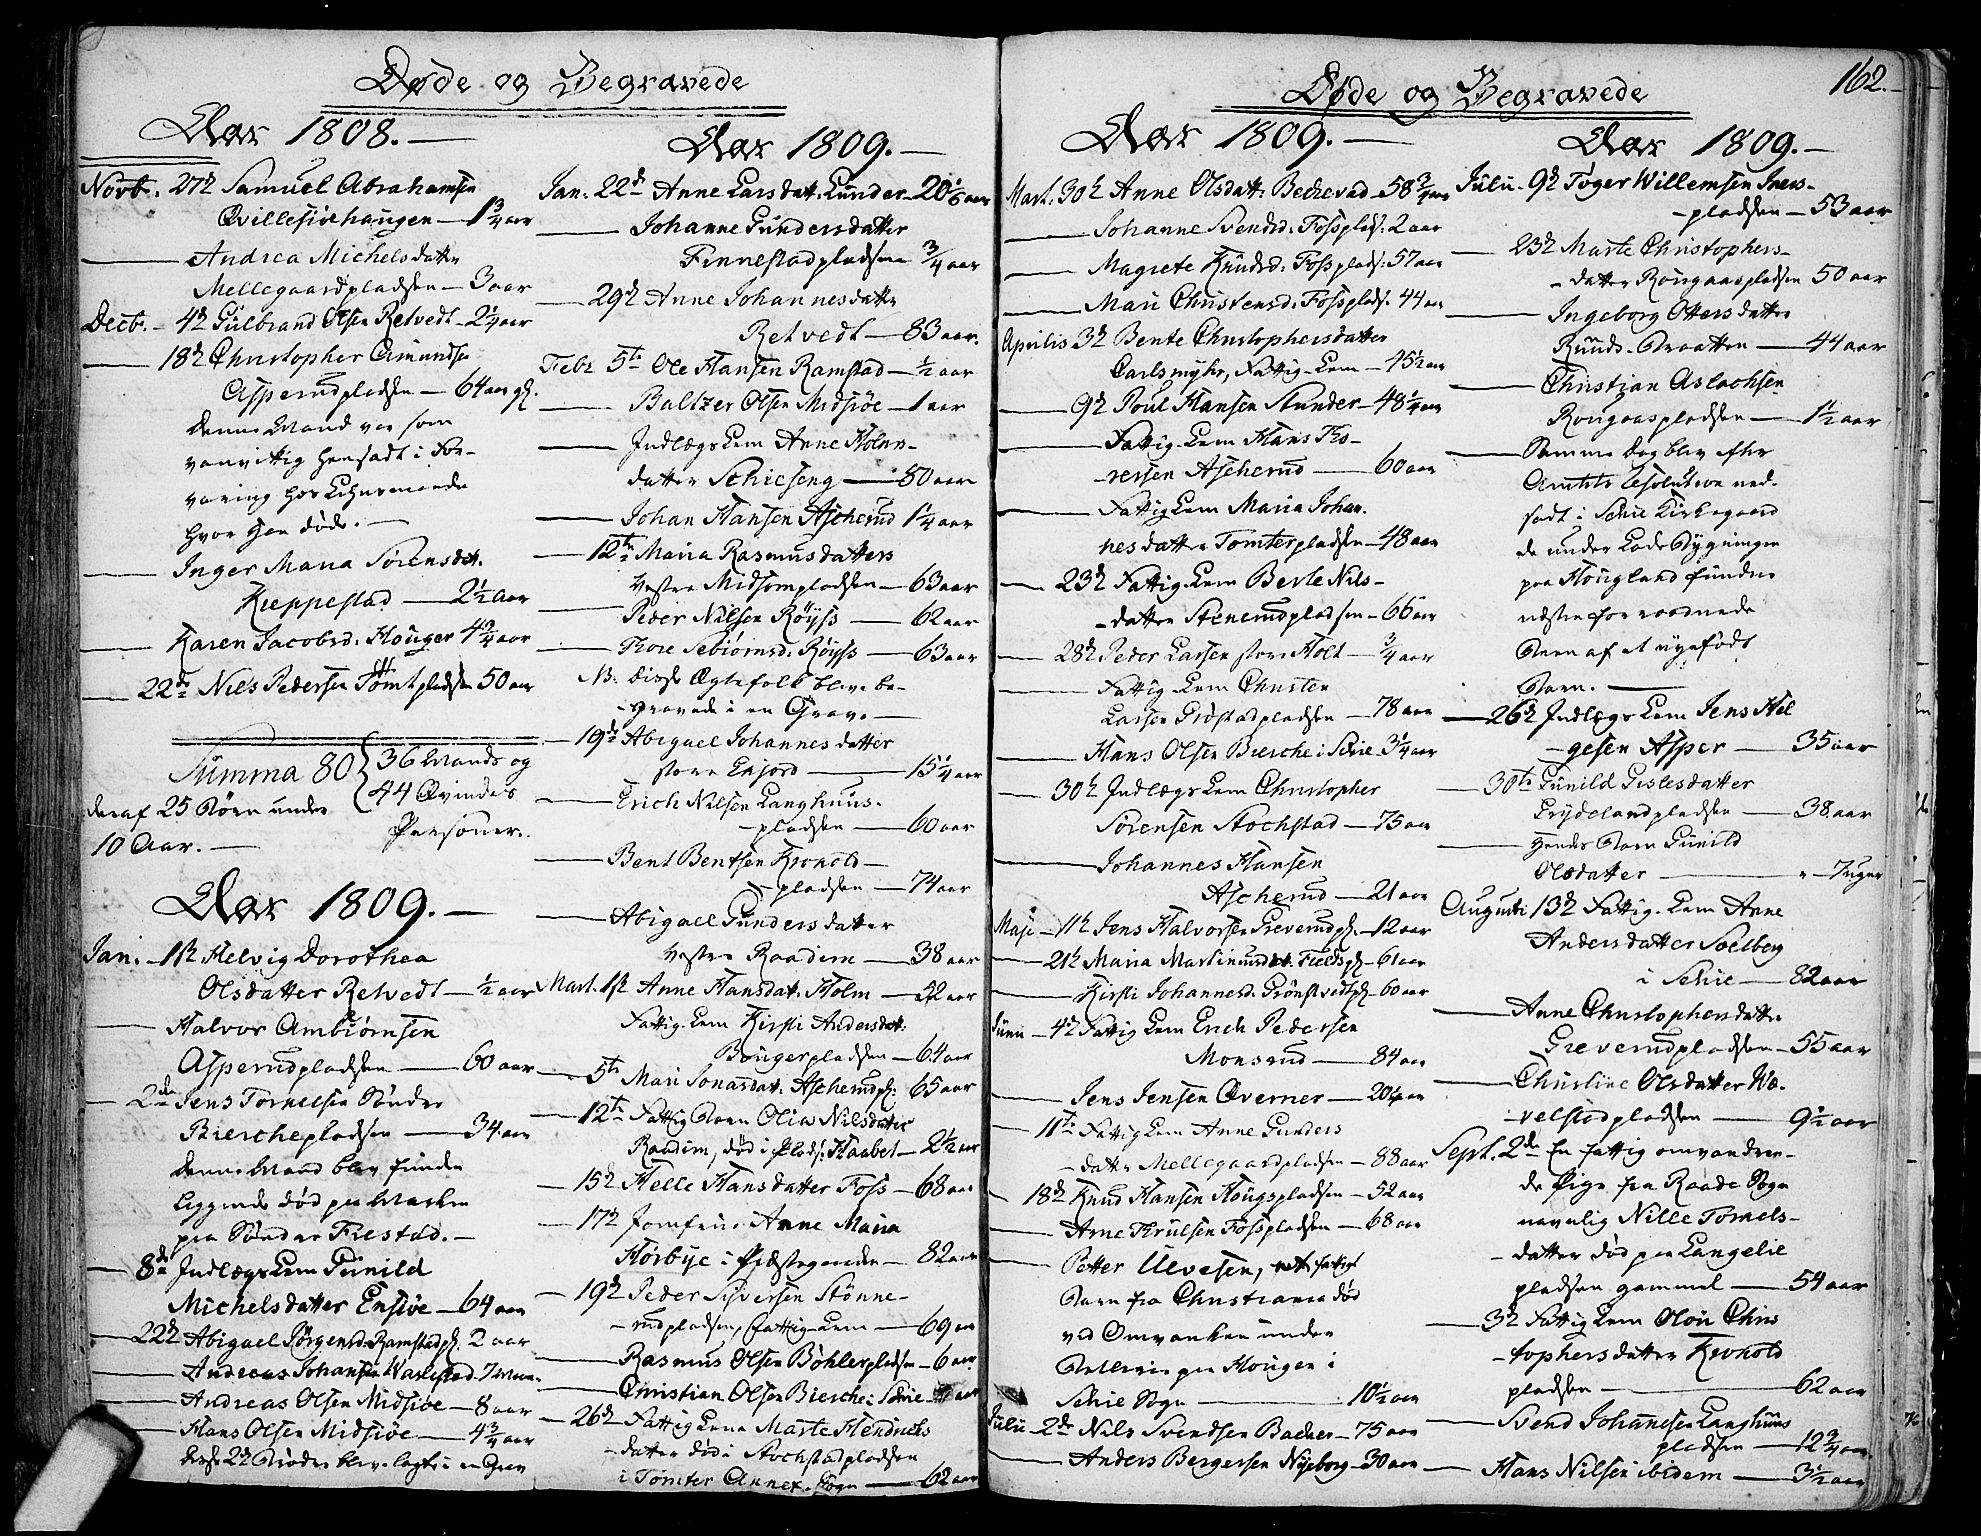 Døde og Begravede
Aar 1808.
Novb. 27de Samuel Abrahamsen
Qvillesiøehaugen 1 3/4 aar
Andrea Michelsdatter
Mellegaardpladsen 3 aar
Decb. 4de Gulbrand Olsen Retvedt 2 1/4 aar
18de Christopher Amundsen
Asperudpladsen 64 aar gl.
denne Mand var som
vanvittig hensadt i For-
varing hos Lehnsmanden
hvor han døde.
Inger Maria Sørensdat.
Kieppestad 2 1/2 Aar
Karen Jacobsd. Houger 4 3/4 aar
22de Nils Pedersen Tomtpladsen 50 aar
Summa 80 { 36 Mands og
44 Qvindes
Personer.
deraf 25 Børn under
10 Aar.
Aar 1809.
Jan. 1ste Helvig Dorothea
Olsdatter Retvedt 1/2 aar
Halvor Ambiørnsen
Asperudpladsen 60 aar
2den Jens Tornelsen Sønder
Bierchepladsen 34 aar
denne Mand blev funden
liggende død paa Marken
paa Sønder Frestad.
8de Indlægs Lem Gunild
Michelsdatter Ensiøe 64 aar
22de Abigael Jørgensd. Ramstadpl. 2 aar
Andreas Johansen
Andreas Olsen Midsiøe 8 aar
Hans Olsen Midsiøe 4 3/4 aar
disse 2de Brødre blev lagte i en Grav
Aar 1809.
Jan. 22de Anne Larsdatt. Lunder 20 1/6 aar
Johanne Gundersdatter
Finnestadpladsen 3/4 aar
29de Anne Johannesdatter
Retvedt 83 aar.
Febr 5te Ole Hansen Ramstad 1/2 aar
Baltzer Olsen Midsiøe 1 aar
Indlægs Lem Anne
datter Schieseng 80 aar
Johan Hansen Ascherud 1 1/4 aar
12te Maria Rasmusdatter
Vestre Midsompladsen 63 aar
Peder Nilsen Røyss 62 aar
Thore Sebiørnsd. Røyss 63 aar
NB. disse Ægtefolk blev be-
gravede i en Grav.
19de Abigael Johannesdatter
store Enjord 15 1/4 aar
Erich Nilsen Langhuus-
pladsen 60 aar
Bent Bentsen Kronold-
pladsen 74 aar
Abigael Gundersdatter
Vestre Raadim 38 aar
Mart. 1ste Anne Hansdat. Holm 22 aar
Fattig-Lem Kirsti Andersdat.
Bougerpladsen 64 aar
5te Mari Jonasdat. Ascherudpl. 65 aar
12te Fattig Barn Olia Nilsdatter
Raadim, død i Plads. Haabet 2 1/2 aar
15de Helle Hansdatter Foss 68 aar
17de Jomfrue Anne Maria
Hørbye i Præstegaarden 82 aar
19de Peder Siversen Stønne-
rudpladsen, fattig-Lem 69 aar
Rasmus Olsen Bøhlerpladsen 6 aar
Christian Olsen Bierche i Schie aar
26de Fattig Lem Marte Hendrichs
datter død i Stochstadpladsen
i Tomter Annex-Sogn 62 aar
Døde og Begravede
162.
Aar 1809.
Mart. 30te Anne Olsdatt. Bechevad 58 3/4 aar
Johanne Svendsd. Fosspladsen 2 aar
Magrete Knudsd. Fossplads. 57 aar
Mari Christensd. Fossplads. 44 aar
Aprilis 3de Bente Christophersdatter
Carlsmyhr, Fattig-Lem 45 1/2 aar
9de Poul Hansen Stunder 48 1/4 aar
Fattig-Lem Hans Tro-
rersen Ascherud 60 aar
Fattig Lem Maria Johan-
nesdatter Tomterpladsen 48 aar
23de Fattig-Lem Berte Nils-
datter Stenerudpladsen 66 aar
28de Peder Larsen store Holt 3/4 aar
Fattig Lem Christen
Larsen Grøstadpladsen 78 aar
Hans Olsen Bierche i Schie 3 1/4 aar
30te Indlægs Lem Christopher
Sørensen Stochstad 75 aar
Johannes Hansen
Ascherud 21 aar
Maji 11te Jens Halvorsen Greverudpl. 12 aar
21de Maria Martinusdat. Fieldspl. 61 aar
Kirsti Johannesd. Grønstvedtpl. 60 aar
Junii 4de Fattig Lem Erich Pedersen
Monsrud 84 aar
Jens Jensen Qverner 20 aar
11te Fattig Lem Anne Gunders
datter Mellegaardpladsen 88 aar
18de Knud Hansen Hougspladsen 52 aar
Arne Trulsen Fosspladsen 68 aar
Petter Ulvesen, et fattigt
Barn fra Christiania død
ved Omvanken under
Betlerie paa Hougen i
Schie Sogn 10 1/2 aar
Julii 2de Nils Svendsen Bacher 75 aar
Anders Bergersen Nyeborg 30 aar
Aar 1809.
Julii 9de Toger Willemsen Ines-
pladsen 53 aar
23de Marte Christophers-
datter Rougaaspladsen 50 aar
Ingeborg Ottersdatter
Ruuds-Braatten 44 aar
Christian Aslachsen
Rougaaspladsen 1 1/2 aar
Samme dag blev efter
Amtets Resolution ned-
sadt i Schie Kirkegaard
de under Lade Bygningen
paa Hougland fundne
næsten forraadnede
Been af et nyefødt
Barn.
26de Indlægs Lem Jens Hel
gesen Asper 35 aar
30te Gunild Gislesdatter
Frydelandpladsen 38 aar
hendes Barn Gunild
Olsdatter 7 uger
Augusti 13de Fattig-Lem Anne
Andersdatter Solberg
i Schie 82 aar
Anne Christophersdatter
Greverudpladsen 55 aar
Christine Olsdatter Wæ-
velstadpladsen 9 1/2 aar
Sept. 2de En fattig omvandren-
de Pige fra Raade Sogn
navnlig Nille Tornels-
datter død paa Langelie
pladsen gammel 54 aar
3de Fattig Lem Olou Chris
tophersdatter Kronold
pladsen 62 aar
Svend Johannesen Langhuus
pladsen 12 3/4 aar
Hans Nilsen ibidem 3 1/2 aar